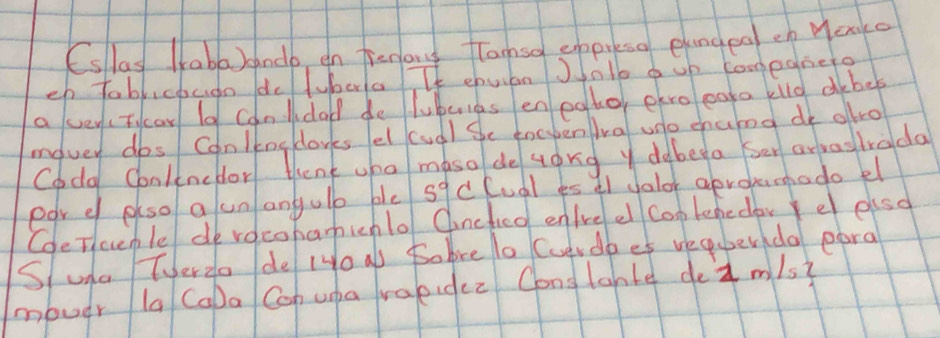 Estas trabajando en Tenaris Tamsa empresa principal en Mexico
en fabricacion de tuberia Te envian Junto a un compañero
a verificar la cantidad de tuberias en patio, pero para ello debes
mover dos contenedores el cual se encuentra uno encima de otro
Cada contenedor tiene una masa de 40kg y debera ser arrastrada
por el piso a un angulo de 59° Cual es el valor aproximado el
Coeficiente de rozonamiento Cinetico entre el contenedor y el piso
Si una fuerza de 140N Sobre la Cuerda es requerida para
mover la Caja Con una rapidez Constante de 2 m/s?